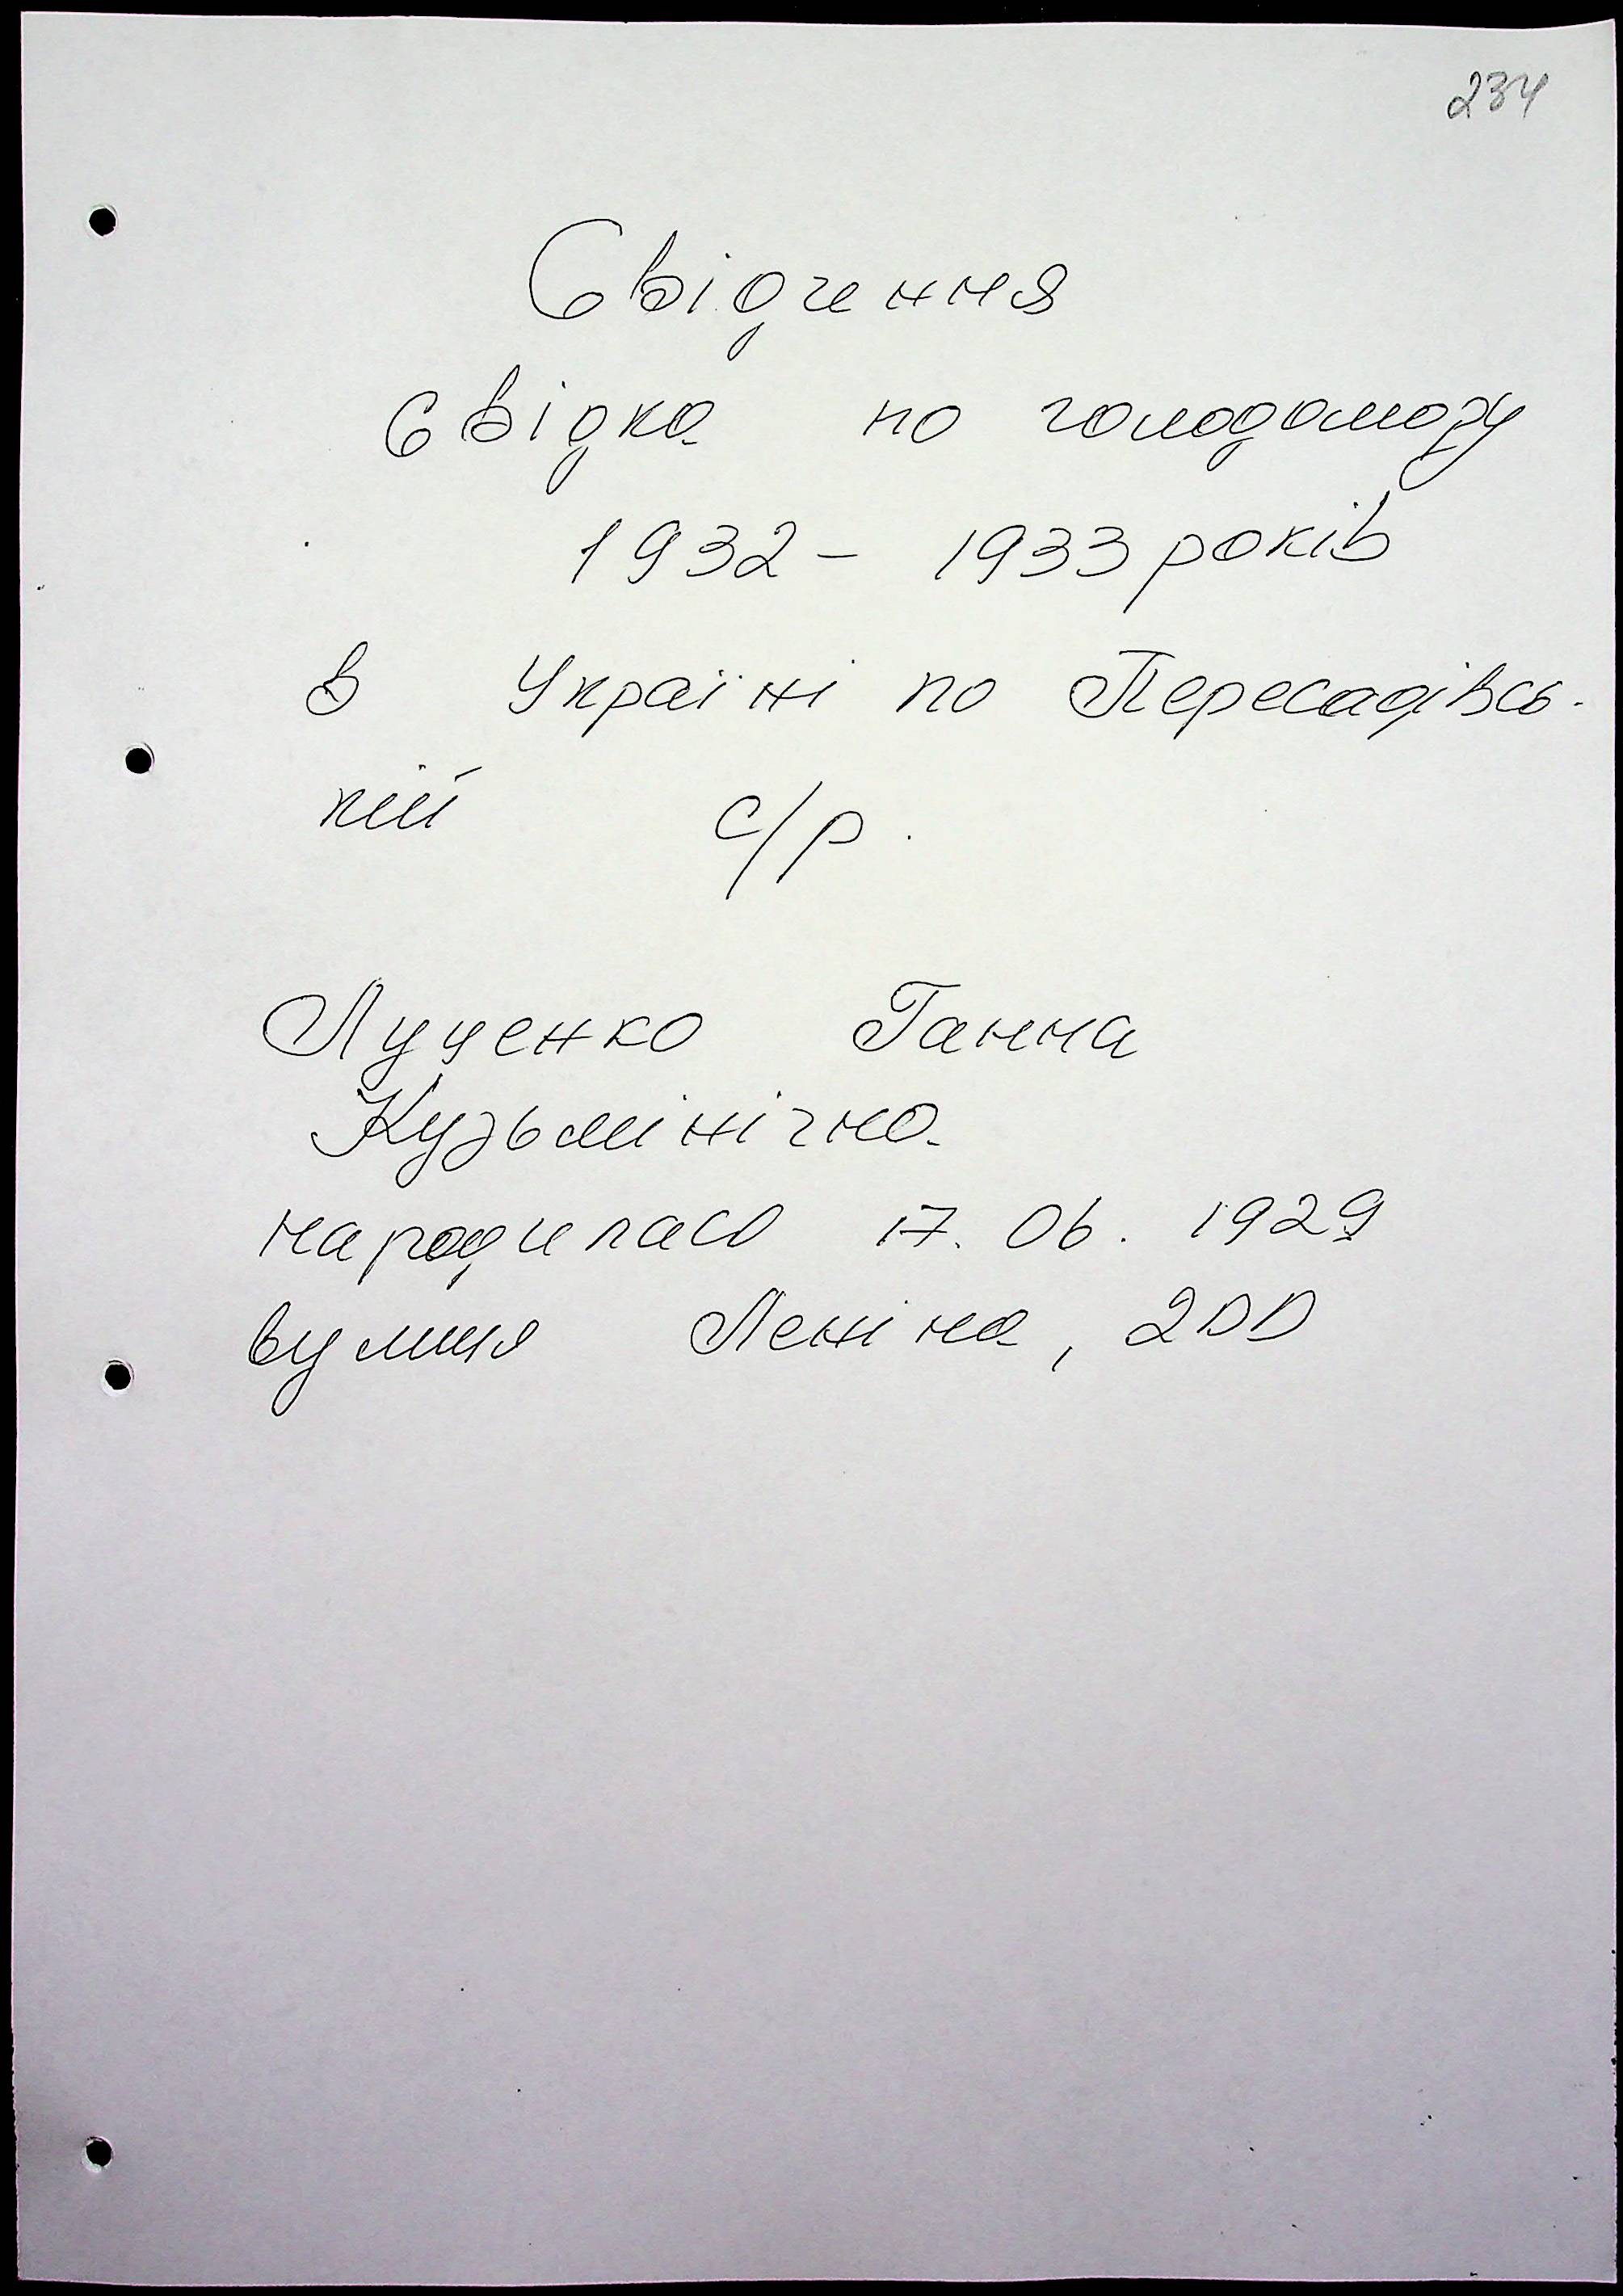 234
Свідчення
свідка по голодомору
1932 – 1933 років
в Україні по Пересадівсь-
кій с/р.
Луценко Ганна
Кузьмінічна
народилась 17.06.1929
вулиця Леніна, 200